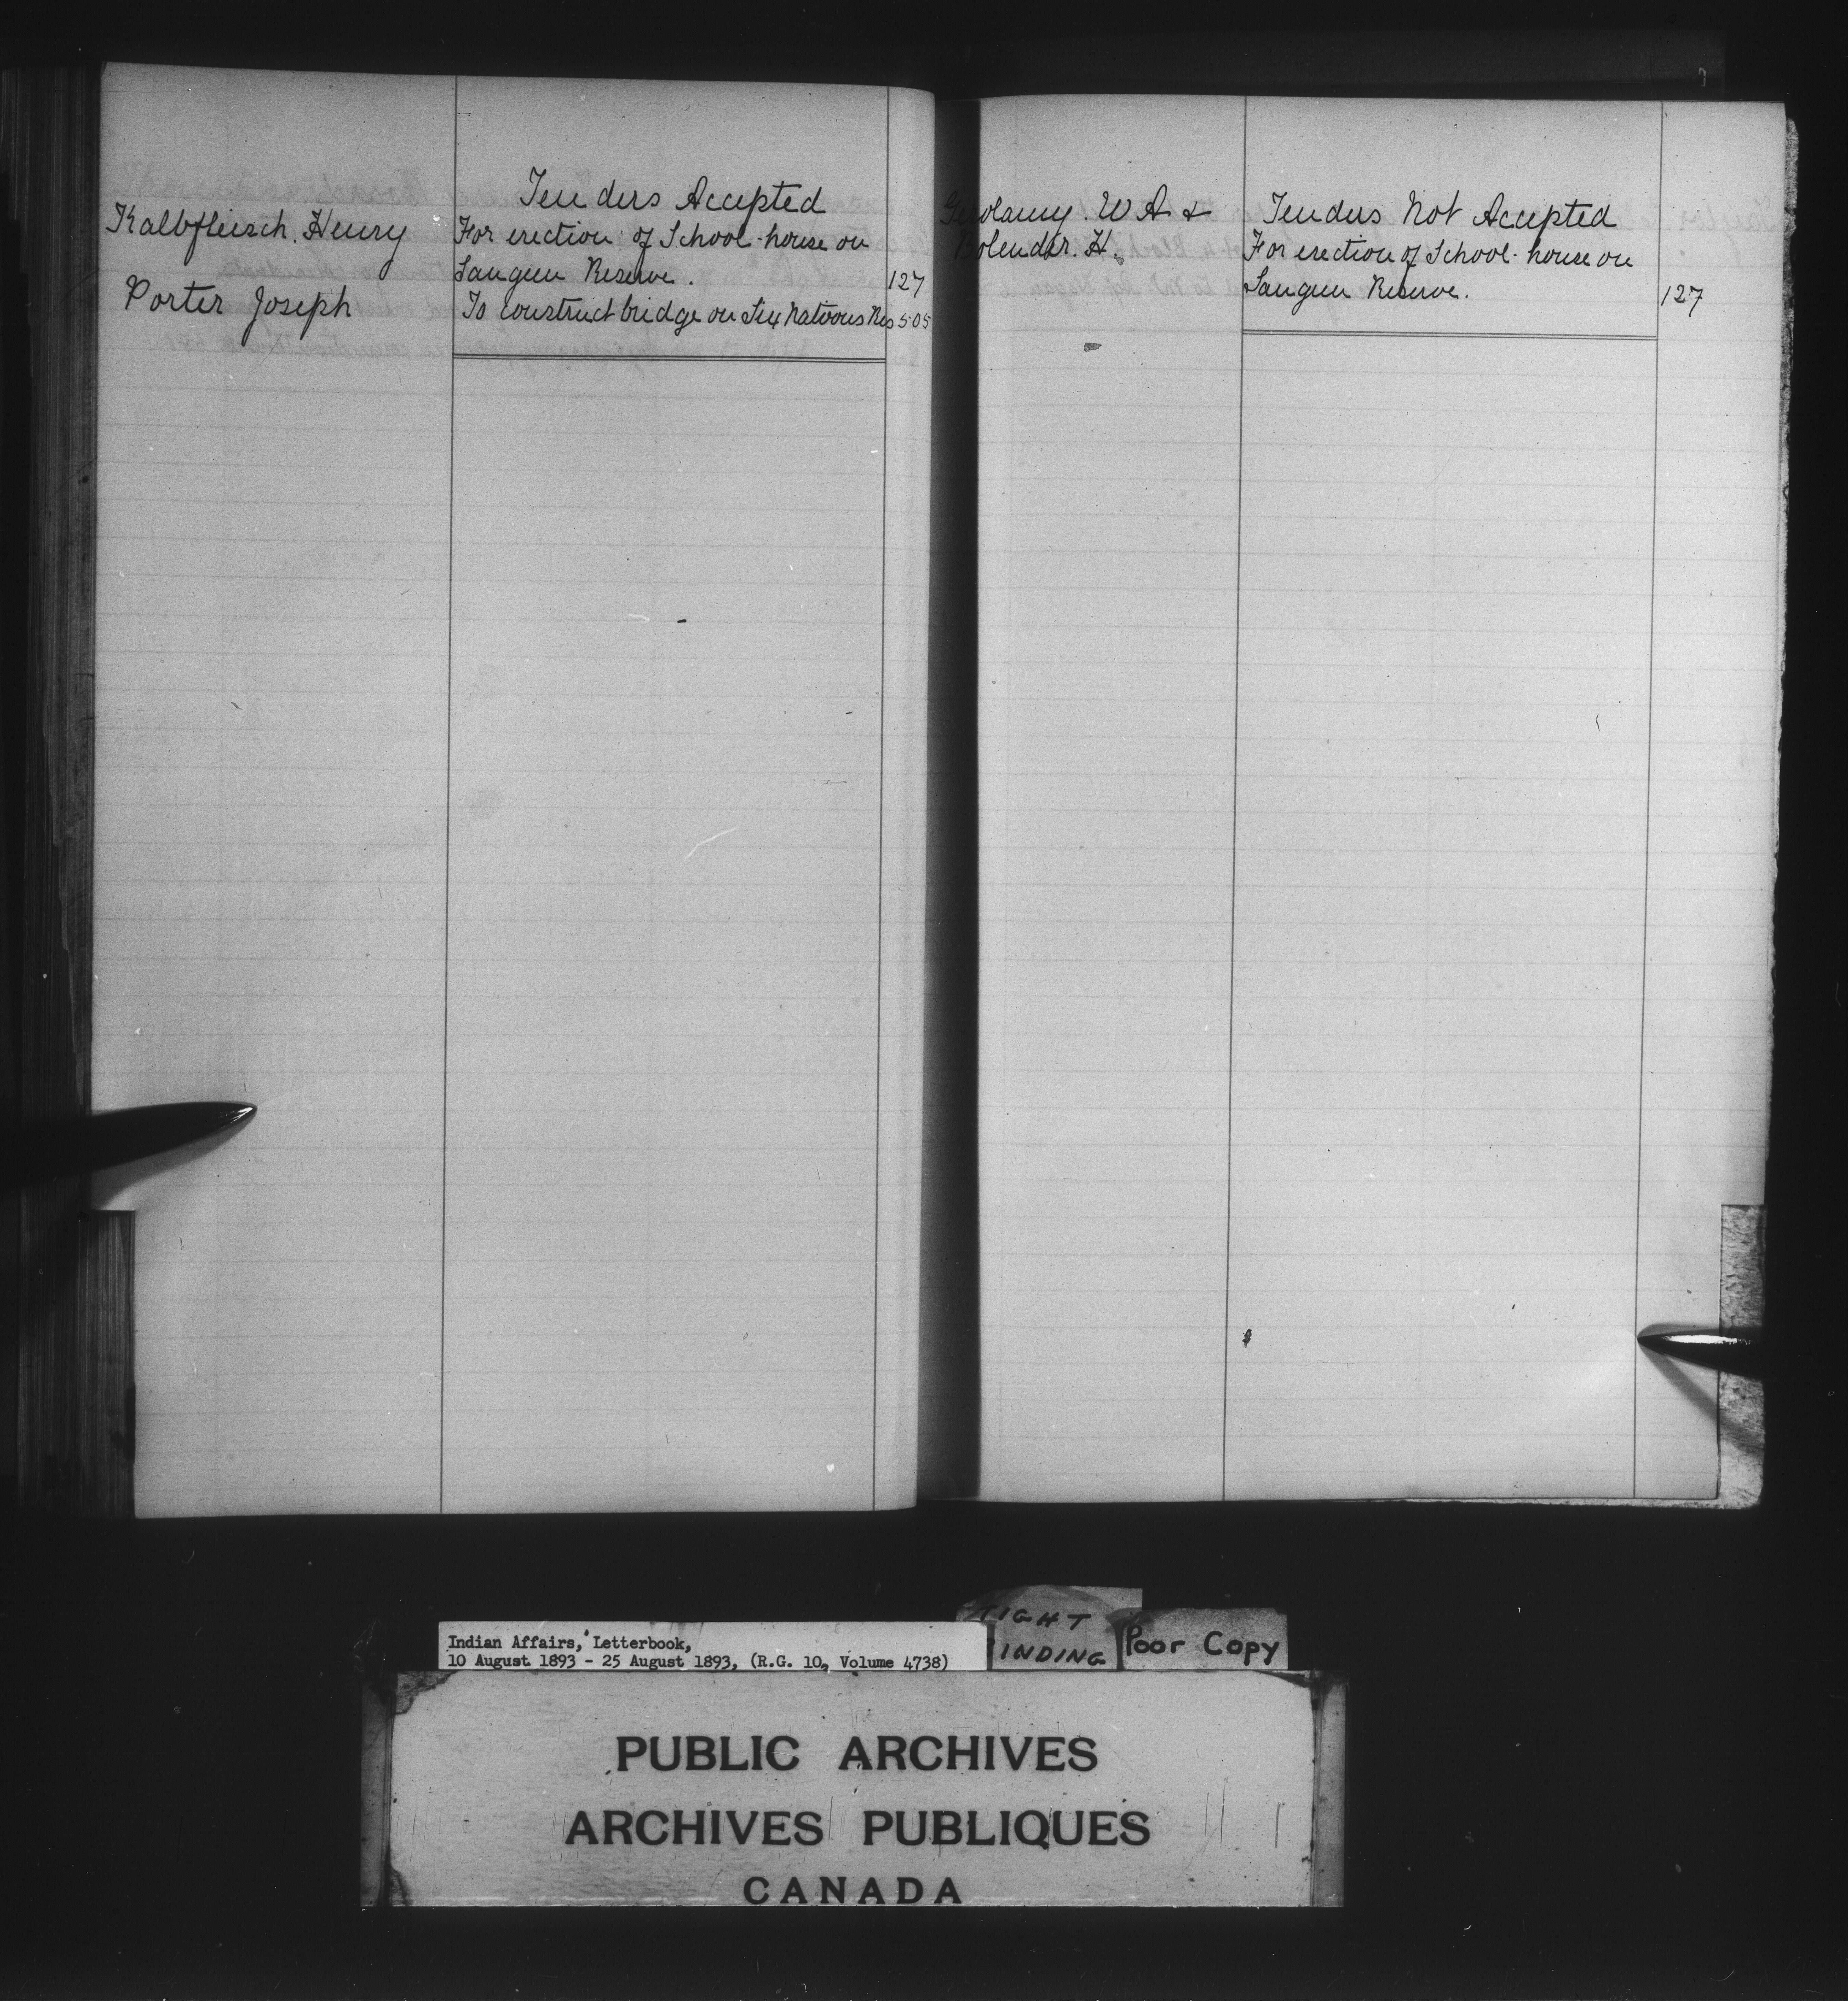 Tenders Accepted
Kalbfleisch. Henry For erection of School-house on
Saugeen Reserve. 127
Porter Joseph To construct bridge on Six Nations Res 505
W A & Tenders Not Accepted
Bolender. H. For erection of School-house on
Saugeen Reserve. 127
TIGHT
BINDING
Poor Copy
Indian Affairs, Letterbook,
10 August 1893 - 25 August 1893, (R.G. 10, Volume 4738)
PUBLIC ARCHIVES
ARCHIVES PUBLIQUES
CANADA